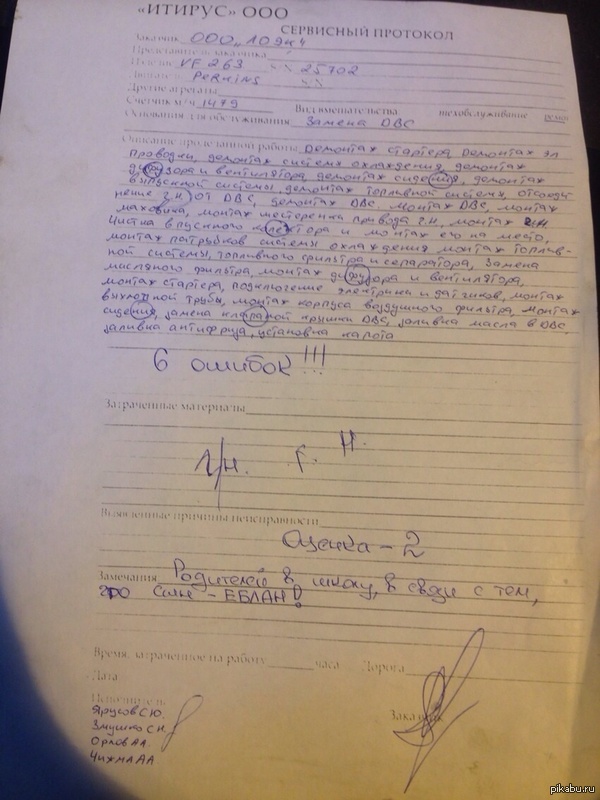 «ИТИРУС» ООО
СЕРВИСНЫЙ ПРОТОКОЛ
Заказчик ООО
Представитель заказчика
VF 263 25702
PERKINS
Другие агрегаты
Счетчик м/ч 1479 Вид вмешательства техобслуживание ремонт
Основания для обслуживания Замена DВС
Описание проделанной работы Демонтаж стартера Демонтаж эл
проводки, демонтаж системы охлаждения, демонтаж
дифузора и вентилятора, демонтаж сидения, демонтаж
выпускной системы, демонтаж топливной системы, отсоеди
нение г.н. от DВС, демонтаж DВС. Монтаж DВС, монтаж
маховика, монтаж шестеренки привода г.н, монтаж г.н.
Чистка впускного колектора и монтаж его на место,
монтаж патрубков системы охлаждения монтаж топлив-
ной системы, топливного фильтра и сепаратора, замена
масляного фильтра, монтаж дифузора и вентилятора,
монтаж стартера, подключение электрики и датчиков, монтаж
выхлопной трубы, монтаж корпуса воздушного фильтра, монтаж
сидения, замена клапаной крышки DВС, заливка масла в DВС,
заливка антифриза, установка капота
6 ошибок!!!
Затраченные материалы
г/н. г. н.
Выявленные причины неисправности
Оценка - 2
Замечания Родителей в школу, в связи с тем,
что сын - ЕБЛАН!
Время, затраченное на работу часа Дорога
Дата
Исполнитель
Ярусов С.Ю.
Змушко С.Н. Заказчик
Орлов А.А.
Чижма А.А.
pikabu.ru